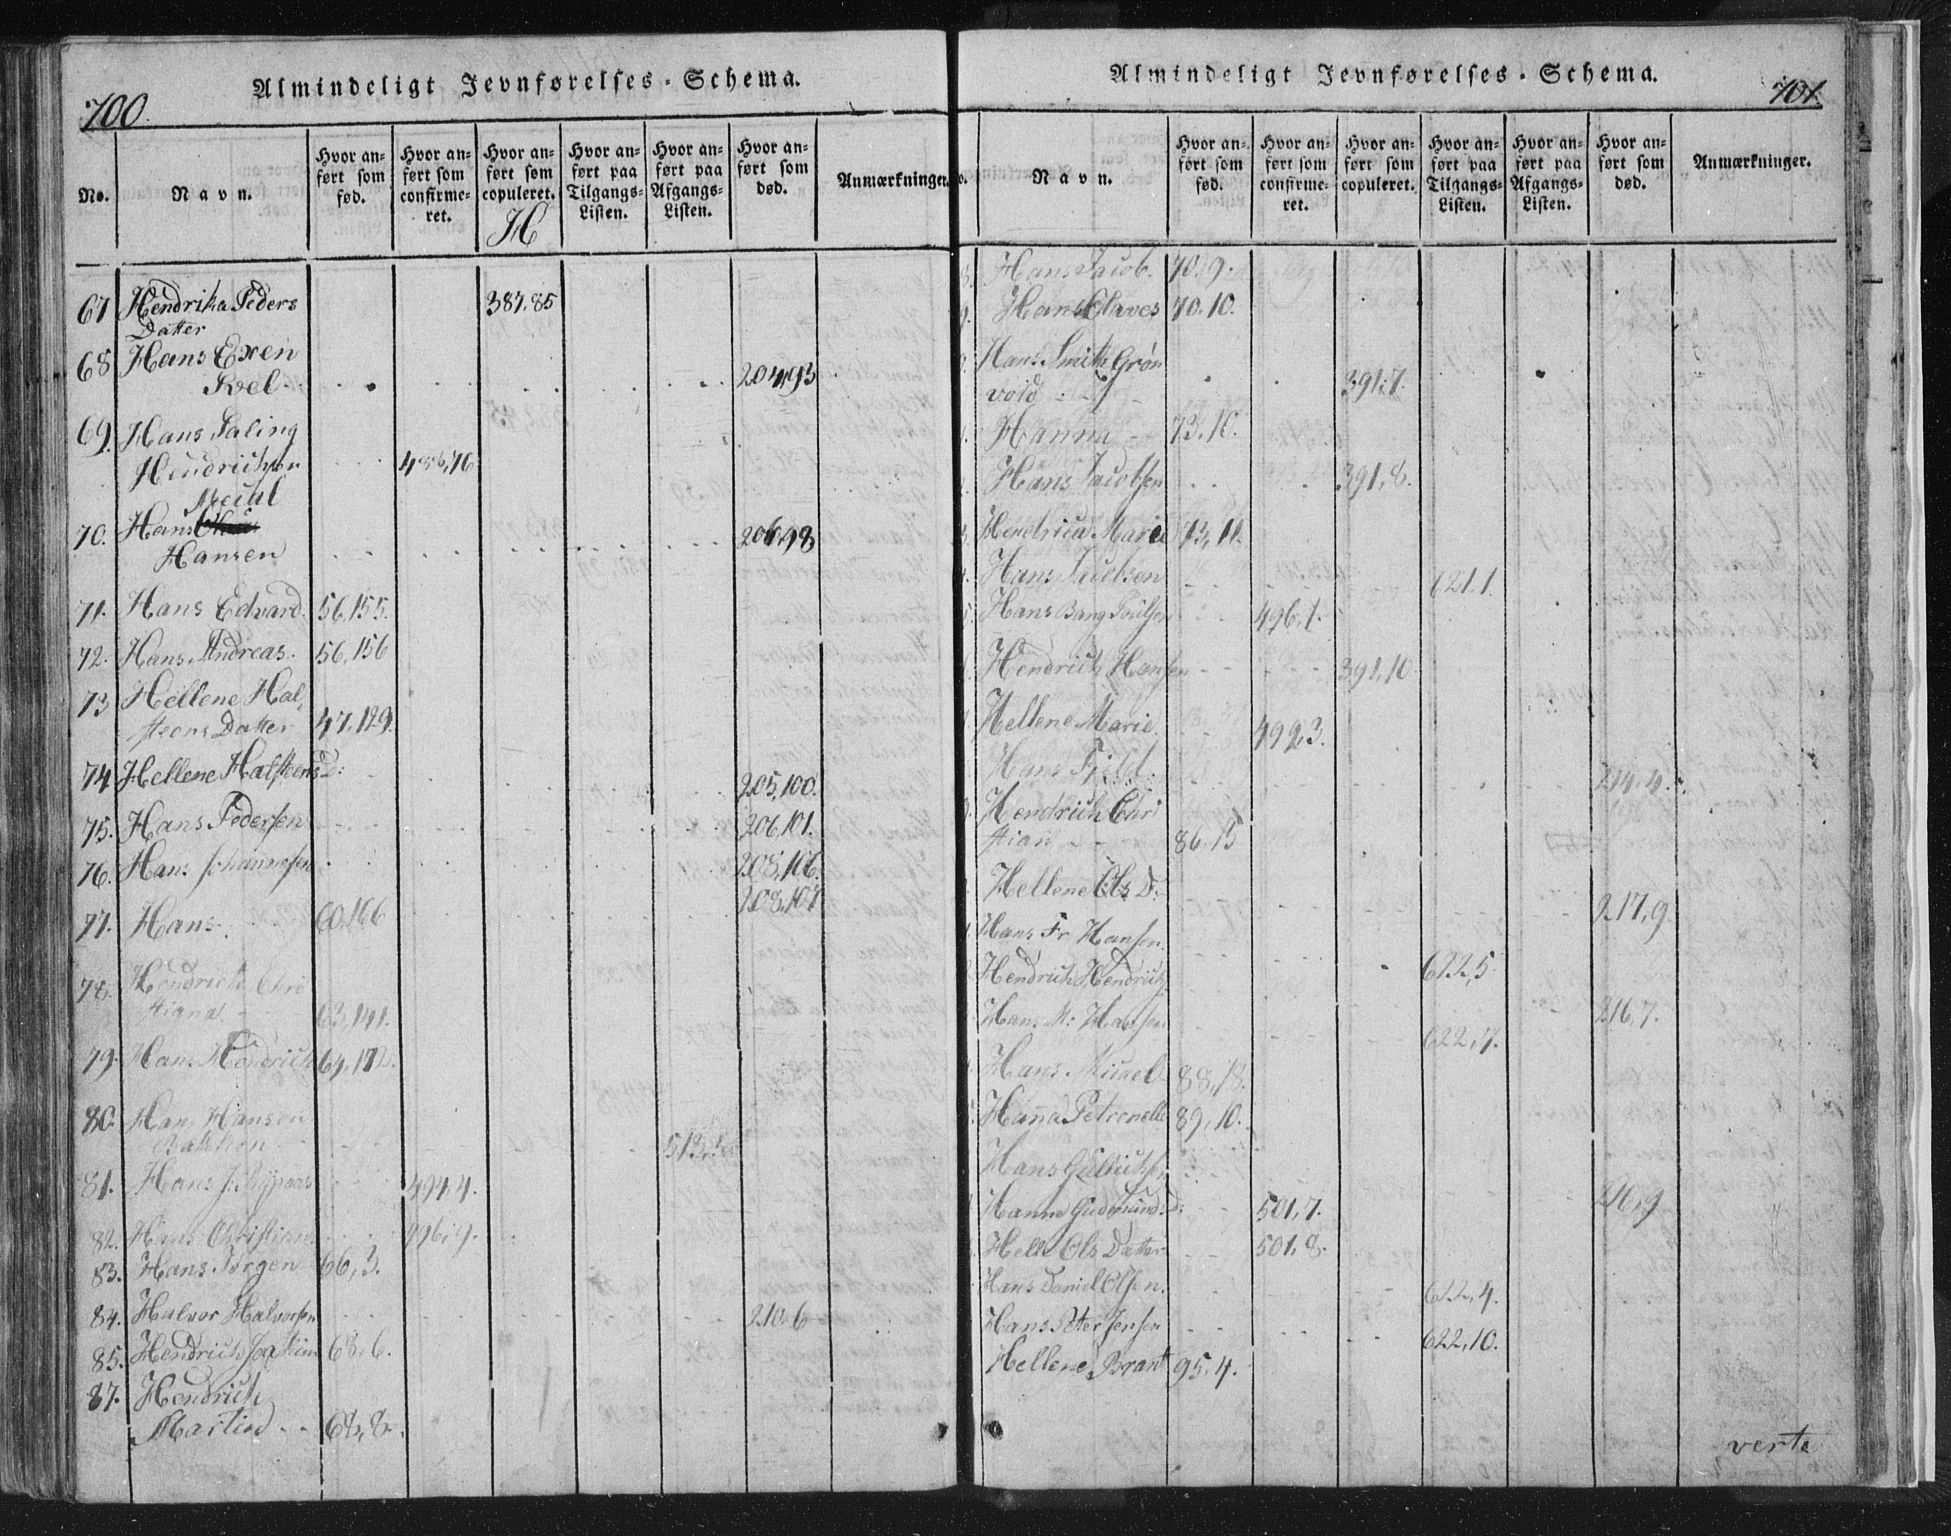 Almindeligt Jevnførelses-Schema.
700.
No.
Navn.
Hvor anført som fød.
Hvor anført som confirmeret.
Hvor anført som copuleret.
Hvor anført paa Tilgangs-Listen.
Hvor anført paa Afgangs-Listen.
Hvor anført som død.
Anmærkninger.
H
67 Hendrika Peders
Datter 387,85
68 Hans Exen
Kvel 204,93
69. Hans Saling
Hendrichsen 486,76
70. Hans
Hansen 206,98
71. Hans Edvard. 56,155.
72. Hans Andreas. 56,156
73 Hellene Hal-
steens Datter 47,129.
74 Hellene Halsteens D: 205,100.
75. Hans Pedersen 206,101.
76. Hans Johannesen 208,106.
208,107
77. Hans 60,166
78. Hendrich Chri
stiana 63,141.
79. Hans Hendrich 64,172.
80. Hans Hansen
Bakken 513,
81. Hans J. 494,4.
82. Hans Christian 496,9.
83. Hans Jørgen 66,3.
84. Halvor Halvorsen 210,6
85. Hendrich Joakim 68,6.
87. Hendrich
Martin 68,8.
Almindeligt Jevnførelses-Schema.
701.
Navn.
Hvor anført som fød.
Hvor anført som confirmeret.
Hvor anført som copuleret.
Hvor anført paa Tilgangs-Listen.
Hvor anført paa Afgangs-Listen.
Hvor anført som død.
Anmærkninger.
Hans Jacob. 70,9.
Hans Claves 70,10.
Hans Smith Grøn
vold 391,7.
Hanna 73,10.
Hans Jacobsen 391,8.
Hendrica Marie 73,11.
Hans Jacobsen 621,1.
Hans Bang Poulsen 496,1.
Hendrich Hansen 391,10
Hellene Marie. 499,3.
Hans Fjeld. 214,4.
Hendrich Chri
stian 86,15
Hellene Ols D. 217,9
Hans Fr Hansen.
Hendrich Hendrichs 622,5
Hans M: Hansen 216,7.
622,7.
Hans Micael 88,18.
Hanna Petronelle 89,10.
Hans
Hanne Gudmund. D: 501,7. 216,9
Helle Ols Datter 501,8.
Hans Daniel Olsen. 622,4.
Hans Peter Jensen 622,10.
Hellene Brant 95,4.
verte